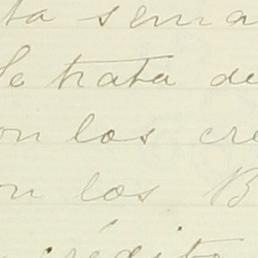 ta sema
Se trata de
on los cre
on los B
crédito